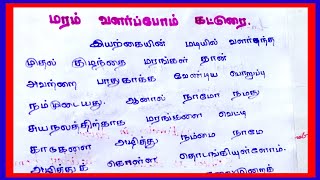 மரம் வளர்ப்போம் கட்டுரை.
இயற்கையின் மடியில் வளர்ந்த
முதல் குழந்தை மரங்கள் தான்
அவற்றை பாதுகாக்க வேண்டிய பொறுப்பு
நம்முடையது. ஆனால் நாமோ நமது
சுயநலத்திற்காக மரங்களை வெட்டி
காடுகளை அழித்து நம்மை நாமே
அழித்துக் கொள்ள தொடங்கியுள்ளோம்.